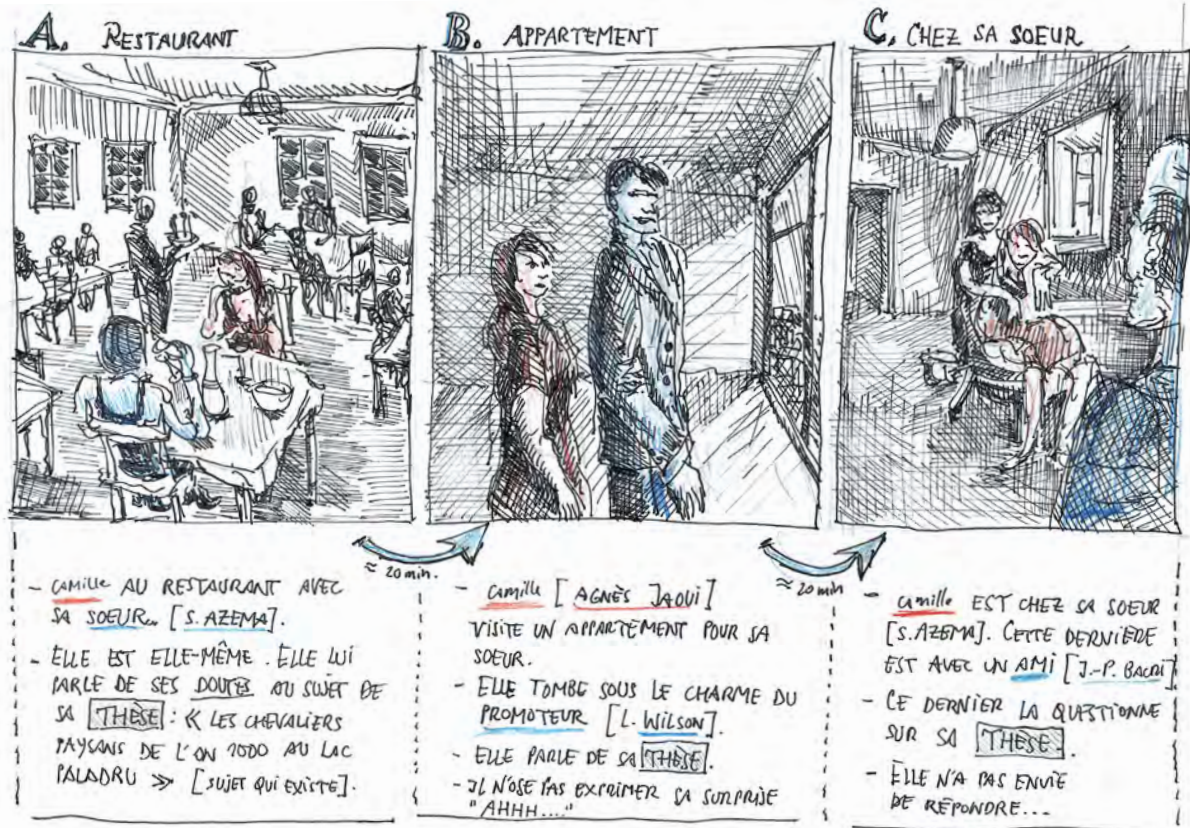 A. RESTAURANT
B. APPARTEMENT
C. CHEZ SA SOEUR
≈ 20 min.
≈ 20 min
- Camille AU RESTAURANT AVEC
SA SOEUR.. [S. AZEMA].
- ELLE EST ELLE-MÊME. ELLE LUI
PARLE DE SES DOUTES AU SUJET DE
SA THÈSE : « LES CHEVALIERS
PAYSANS DE L'ON 1000 AU LAC
PALADRU » [SUJET QUI EXISTE].
- Camille [AGNÈS JAOUI]
VISITE UN APPARTEMENT POUR SA
SOEUR.
- ELLE TOMBE SOUS LE CHARME DU
PROMOTEUR [L. WILSON].
- ELLE PARLE DE SA THÈSE.
- IL N'OSE PAS EXPRIMER SA SURPRISE
"AHHH...."
- Camille EST CHEZ SA SOEUR
[S. AZEMA]. CETTE DERNIÈRE
EST AVEC UN AMI [J.-P. BACRI]
- CE DERNIER LA QUESTIONNE
SUR SA THÈSE.
- ELLE N'A PAS ENVIE
DE RÉPONDRE...